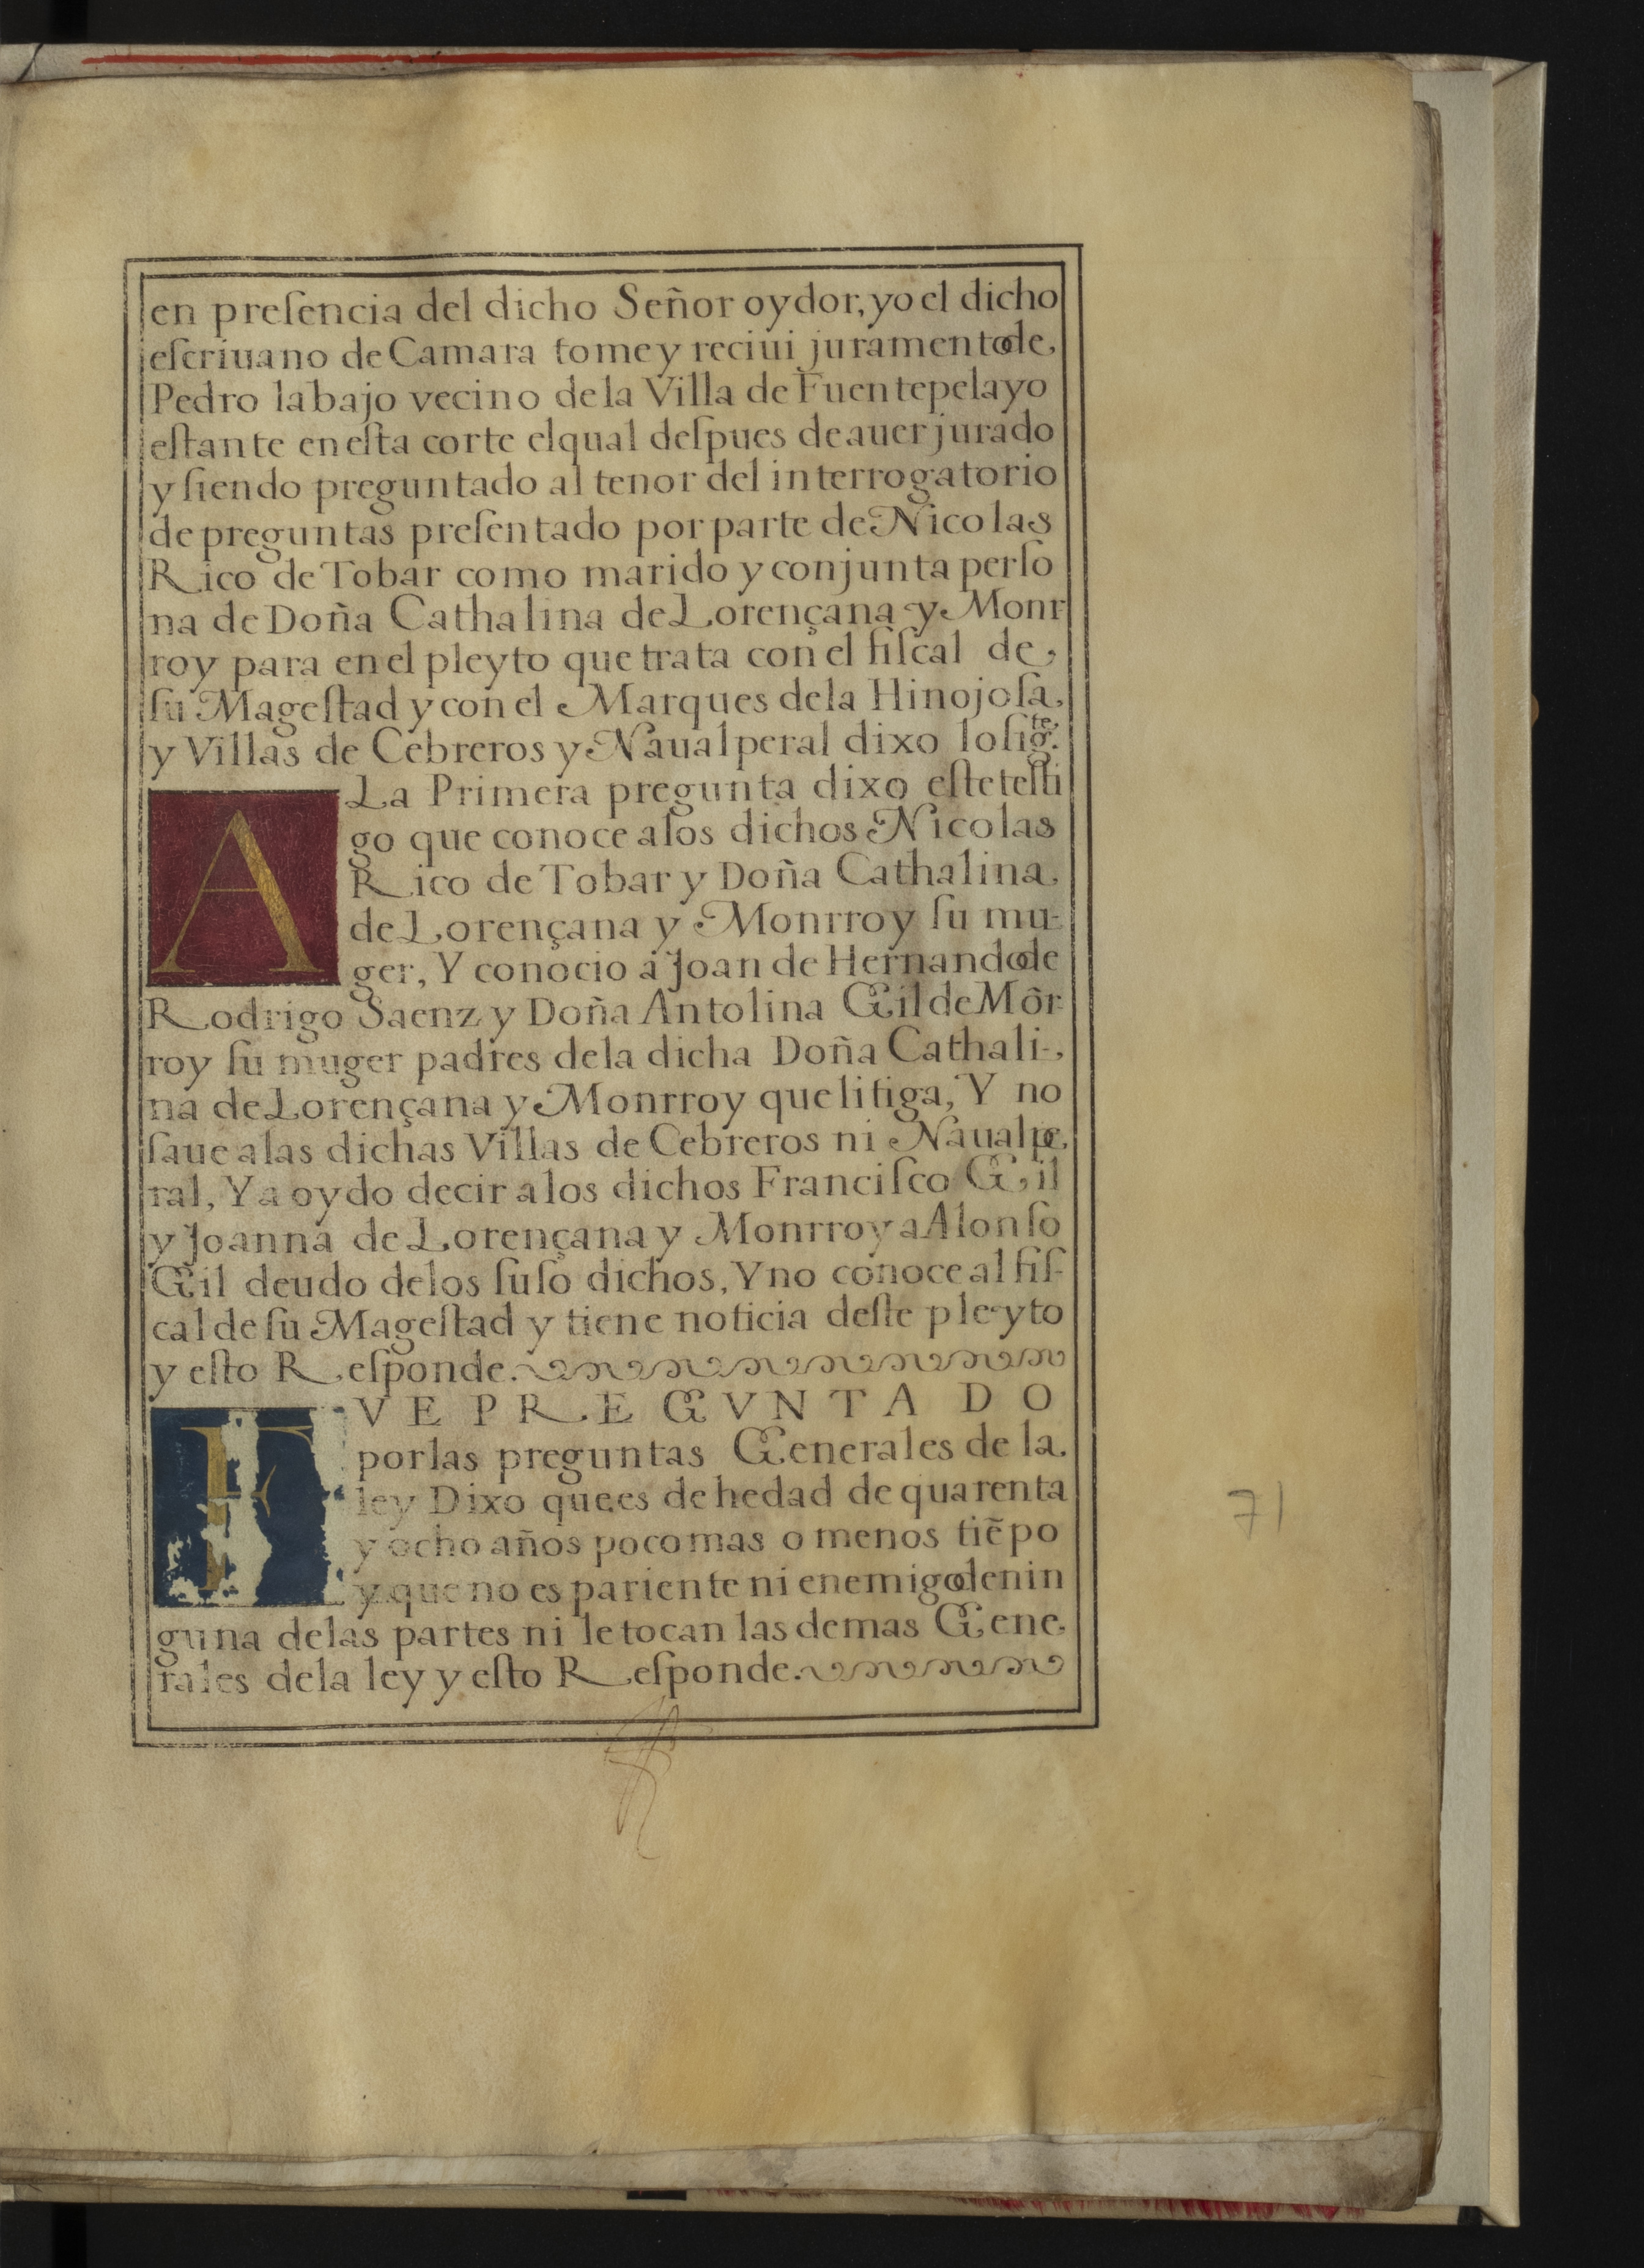 en preſencia del dicho Señor oydor, yo el dicho
eſcriuano de Camara tome y reciui juramento de
Pedro labajo vecino de la Villa de Fuentepelayo
eſtante en eſta corte el qual deſpues de auer jurado
y ſiendo preguntado al tenor del interrogatorio
de preguntas preſentado por parte de Nicolas
Rico de Tobar como marido y conjunta perſo
na de Doña Cathalina de Lorençana y Monr
roy para en el pleyto que trata con el fiſcal de
ſu Mageſtad y con el Marques de la Hinojoſa,
y Villas de Cebreros y Naualperal dixo lo ſigte.
A La Primera pregunta dixo eſte teſti
go que conoce a los dichos Nicolas
Rico de Tobar y Doña Cathalina
de Lorençana y Monrroy ſu mu-
ger, Y conocio á Joan de Hernando de
Rodrigo Saenz y Doña Antolina Gil de Môr
roy ſu muger padres de la dicha Doña Cathali-
na de Lorençana y Monrroy que litiga, Y no
ſaue a las dichas Villas de Cebreros ni Naualpe
ral, Y a oydo decir a los dichos Franciſco Gil
y Joanna de Lorençana y Monrroy a Alonſo
Gil deudo de los ſuſo dichos, Y no conoce al fiſ-
cal de ſu Mageſtad y tiene noticia deſte pleyto
y eſto Reſponde.
FVE PREGVNTADO
por las preguntas Generales de la
ley Dixo que es de hedad de quarenta
y ocho años poco mas o menos tiẽpo
y que no es pariente ni enemigo de nin
guna de las partes ni le tocan las demas Gene
rales de la ley y eſto Reſponde.
71